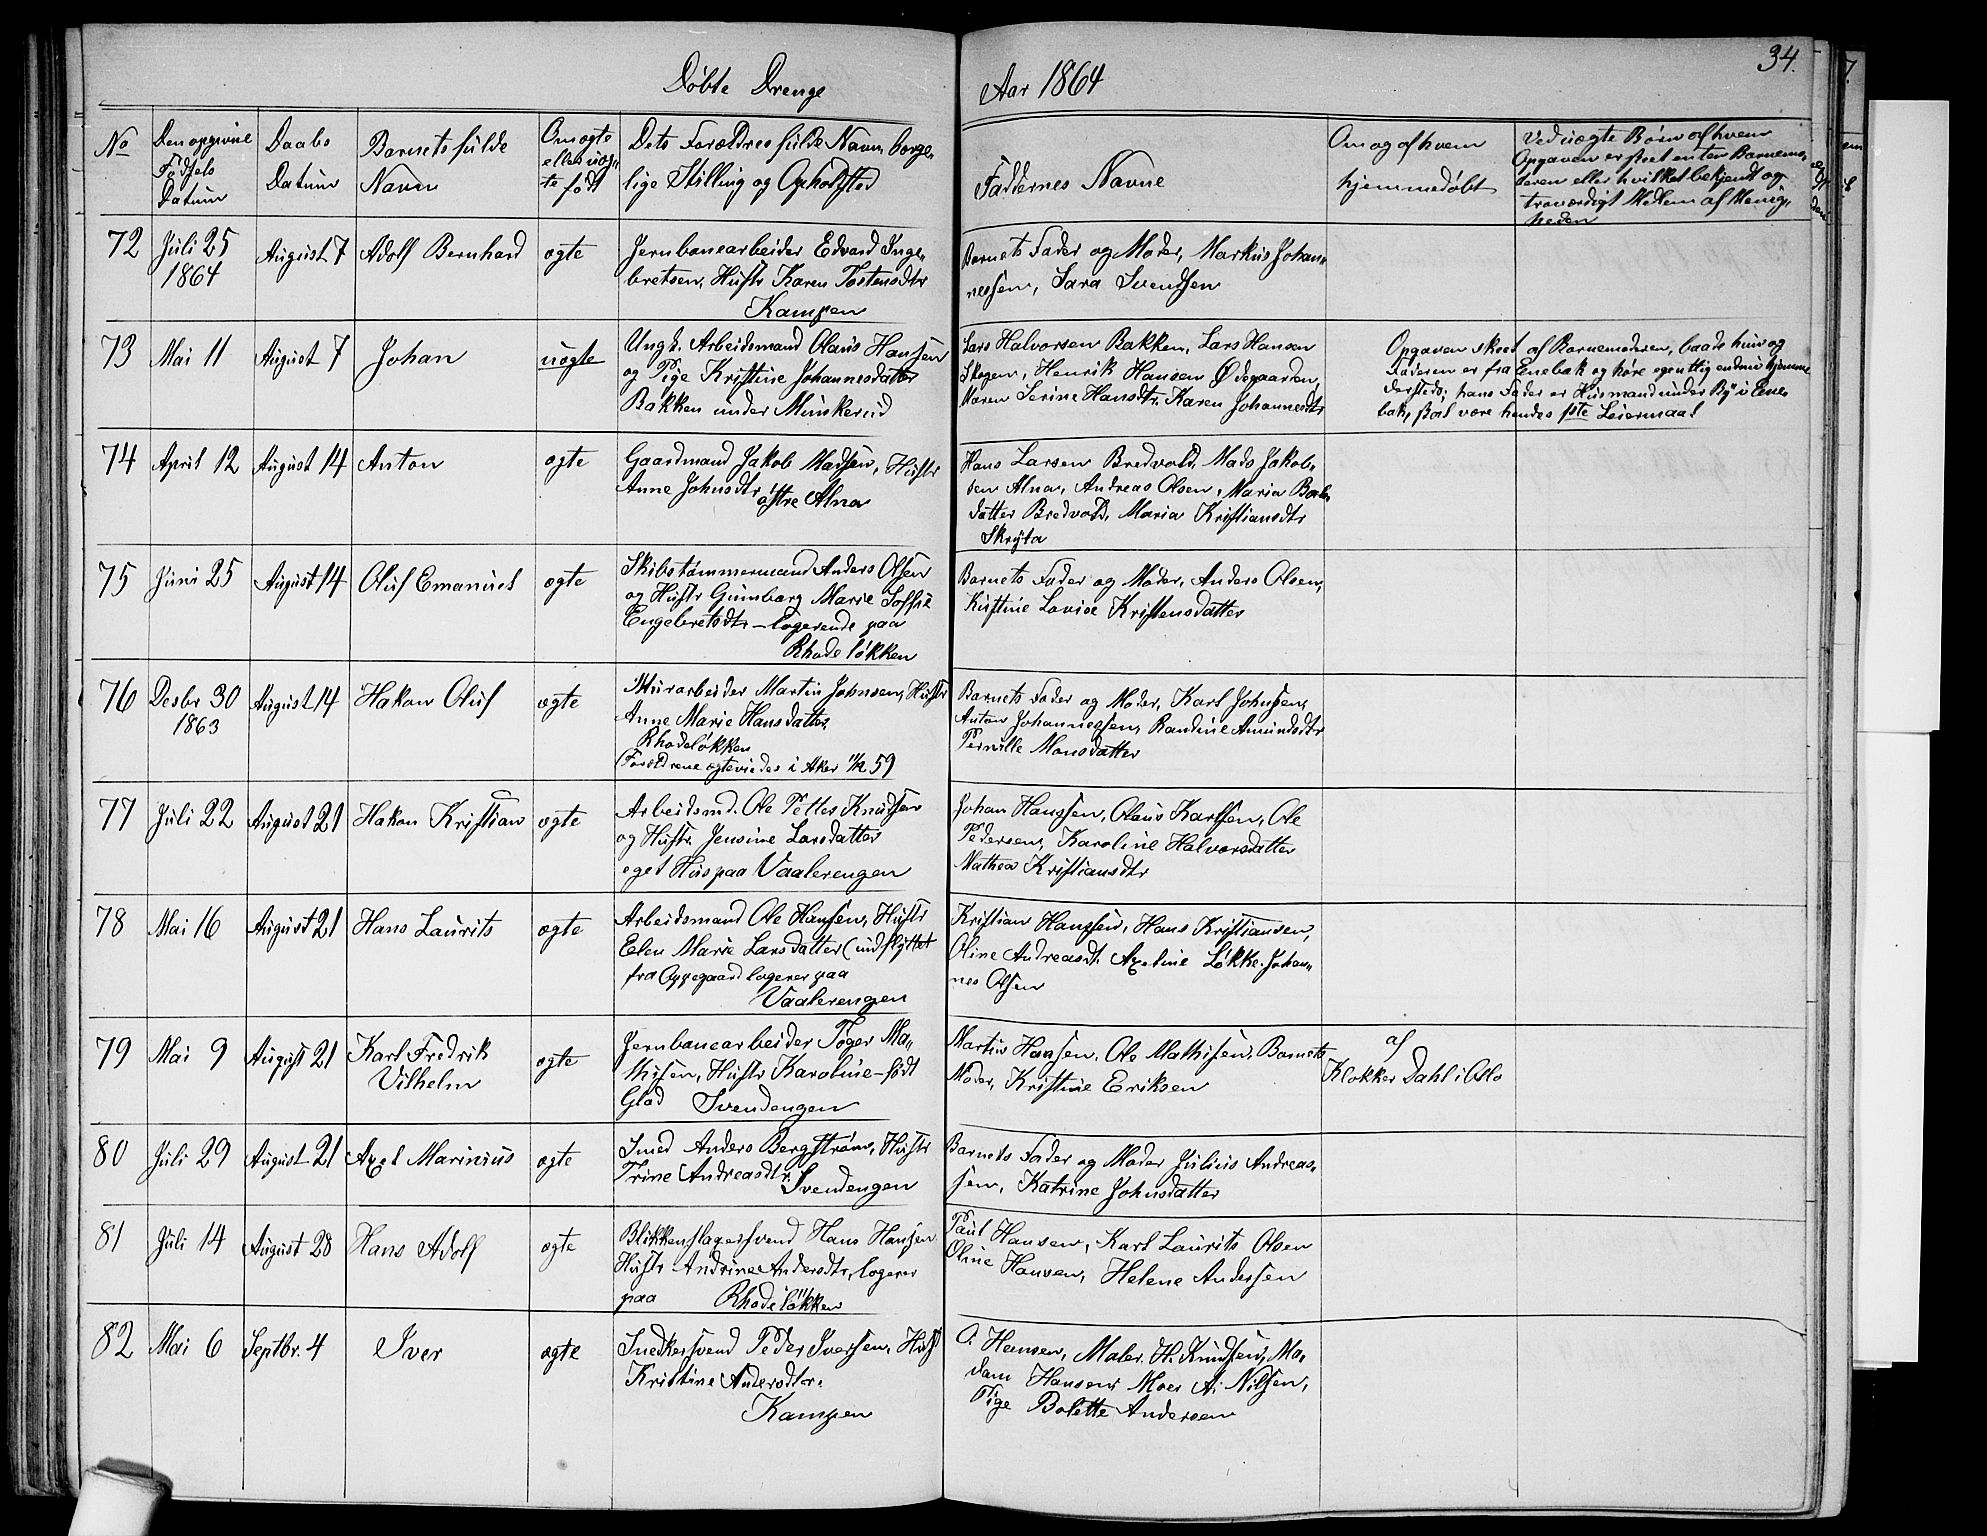 34.
Døbte Drenge
Aar 1864
No
Den opgivne
Fødsels
Datum
Daabs
Datum
Barnets fulde
Navn
Om ægte
eller uæg-
te født
Dets Forældres fulde Navn, borge-
lige Stilling og Opholdsted
Faddernes Navne
Om og af hvem
hjemmedøbt
Ved uægte Børn af hvem
Opgaven er skeet enten Barnemo-
deren eller hvilket bekjendt og
troværdigt Medlem af Menig-
heden
72
Juli 25
1864
August 7
Adolf Bernhard
ægte
Jernbanearbeider Edvard Inge-
bretsen, Hustr Karen Tostensdtr
Kampen
Barnets Fader og Moder, Markus Johan-
nessen, Sara Svendsen
73
Mai 11
August 7
Johan
uægte
Ungk. Arbeidsmand Olaus Hansen
og Pige Kristine Johannesdatter
Bakken under Munkerud
Lars Halvorsen Bakken, Lars Hansen
Skogen, Henrik Hansen Ødegaarden,
Maren Serine Hansdtr. Karen Johannesdtr
Opgaven skeet af Barnemoderen, baade hun og
Faderen er fra Enebak og høre egentlig endnu hjemme
dersteds; hans Fader er Husmand under By i Ene-
bak, skal være hendes 1ste Leiermaal
74
April 12
August 14
Anton
ægte
Gaardmand Jakob Madsen, Hustr
Anne Johnsdtr østre Alna
Hans Larsen Bredvold, Mads Jakob-
sen Alna, Andreas Olsen, Maria
datter Bredvold, Maria Kristiansdtr
Skryta
75
Juni 25
August 14
Oluf Emanuel
ægte
Skibstømmermand Anders Olsen
og Hustr Gunborg Marie Soffie
Engebretsdtr - logerende paa
Rhodeløkken
Barnets Fader og Moder, Anders Olsen,
Kristine Lovise Kristensdatter
76
Desbr 30
1863
August 14
Hakon Oluf
ægte
Murarbeider Martin Johnsen, Hustr
Anne Marie Hansdatter
Rhodeløkken
(Forældrene ægteviedes i Aker 59)
Barnets Fader og Moder, Karl Johnsen,
Anton Johannessen, Randine Amundsdtr
Pernille Monsdatter
77
Juli 22
August 21
Hakon Kristian
ægte
Arbeidsmd. Ole Petter Knudsen
og Hustr. Jensine Larsdatter
eget Hus paa Vaalerengen
Johan Hanssen, Olaus Karlsen, Ole
Pedersen, Karoline Halvorsdatter
Mathea Kristiansdtr
78
Mai 16
August 21
Hans Laurits
ægte
Arbeidsmand Ole Hansen, Hustr
Elen Marie Larsdatter (indflyttet
fra Oppegaard logerer paa
Vaalerengen
Kristian Hanssen, Hans Kristiansen,
Oline Andreasdt. Axeline Løkke. Johan-
nes Olsen
79
Mai 9
August 21
Karl Fredrik
Vilhelm
ægte
Jernbanearbeider Tøger Ma-
thisen, Hustr Karoline - født
Glad Svendengen
Martin Hansen, Ole Mathisen, Barnets
Moder, Kristine Eriksen
af
Klokker Dahl i Oslo
80
Juli 29
August 21
Axel Marinius
ægte
Smed Anders Bergstrøm, Hustr
Trine Andreasdtr.
Svendengen
Barnets Fader og Moder Julius Andreas-
sen, Katrine Johnsdatter
81
Juli 14
August 28
Hans Adolf
ægte
Blikkenslagersvend Hans Hansen
Hustr Andrine Andersdtr, logerer
paa Rhodeløkken
Paul Hansen, Karl Laurits Olsen
Oline Hansen, Helene Andersen
82
Mai 6
Septbr. 4
Iver
ægte
Snedkersvend Peder Iversen, Hust
Kristine Andersdtr.
Kampen
O. Hansen, Maler. H. Knudsen, Ma-
dam Hansen, A. Nilsen,
Pige Bolette Andersen